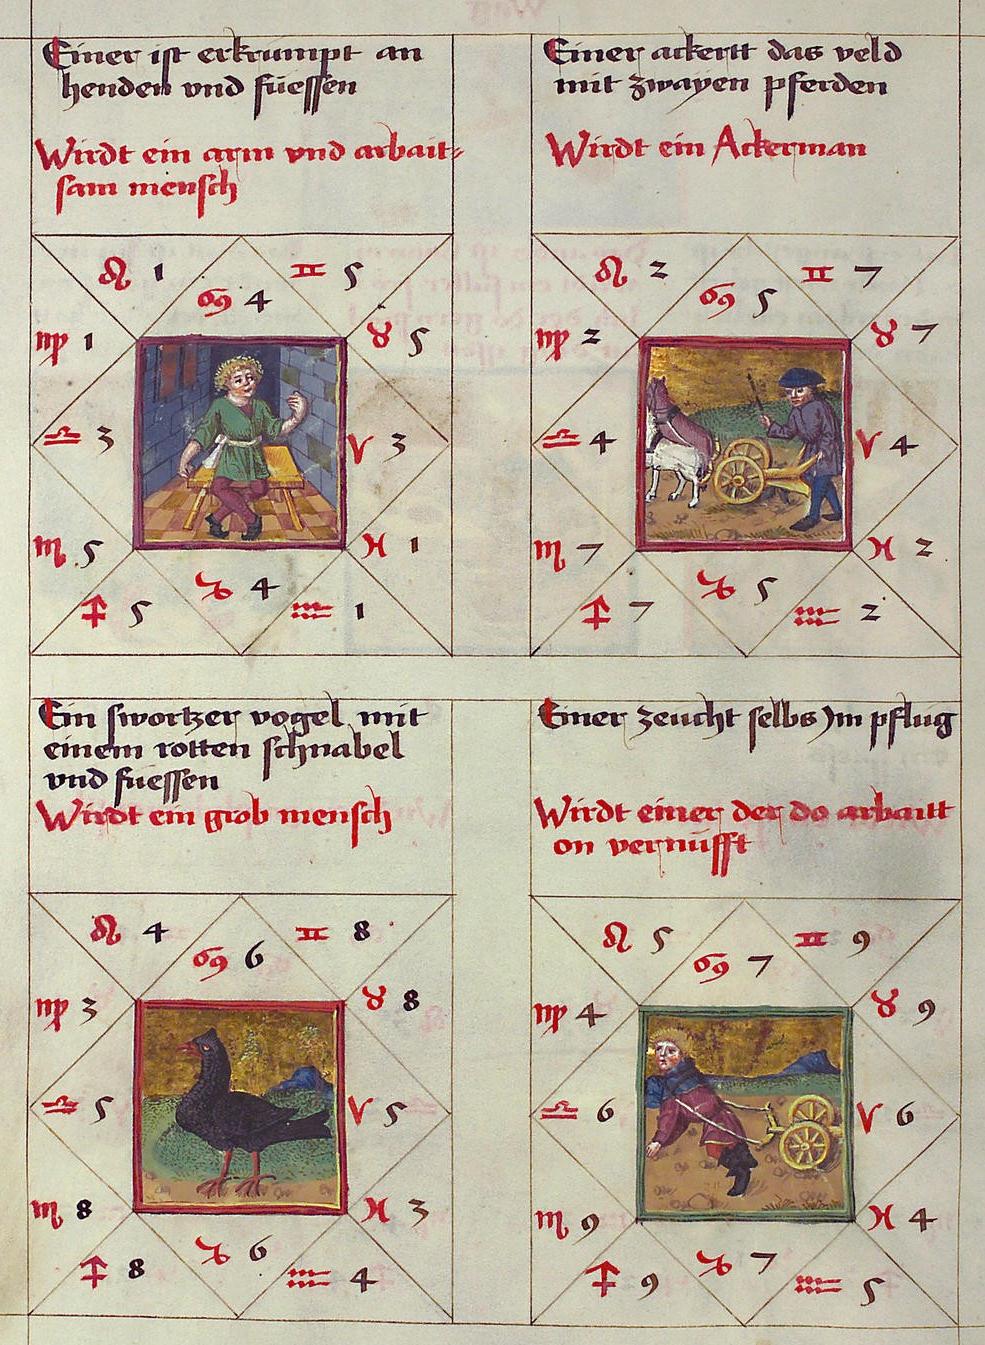 Einer ist erkrumpt an
henden vnd füessen
Wirdt ein arm vnd arbait-
sam mensch
♌ 1
♋ 4
♊ 5
♍ 1
♉ 5
♎ 3
♈ 3
♏ 5
♓ 1
♐ 5
♑ 4
♒ 1
Einer ackertt das veld
mit zwayen pferden
Wirdt ein Ackerman
♌ 2
♋ 5
♊ 7
♍ 2
♉ 7
♎ 4
♈ 4
♏ 7
♓ 2
♐ 7
♑ 5
♒ 2
Ein swortzer vogel mit
einem rotten schnabel
vnd füessen
Wirdt ein grob mensch
♌ 4
♋ 6
♊ 8
♍ 3
♉ 8
♎ 5
♈ 5
♏ 8
♓ 3
♐ 8
♑ 6
♒ 4
Einer zeucht selbs Jm pflug
Wirdt einer der do arbaitt
on vernüfft
♌ 5
♋ 7
♊ 9
♍ 4
♉ 9
♎ 6
♈ 6
♏ 9
♓ 4
♐ 9
♑ 7
♒ 5